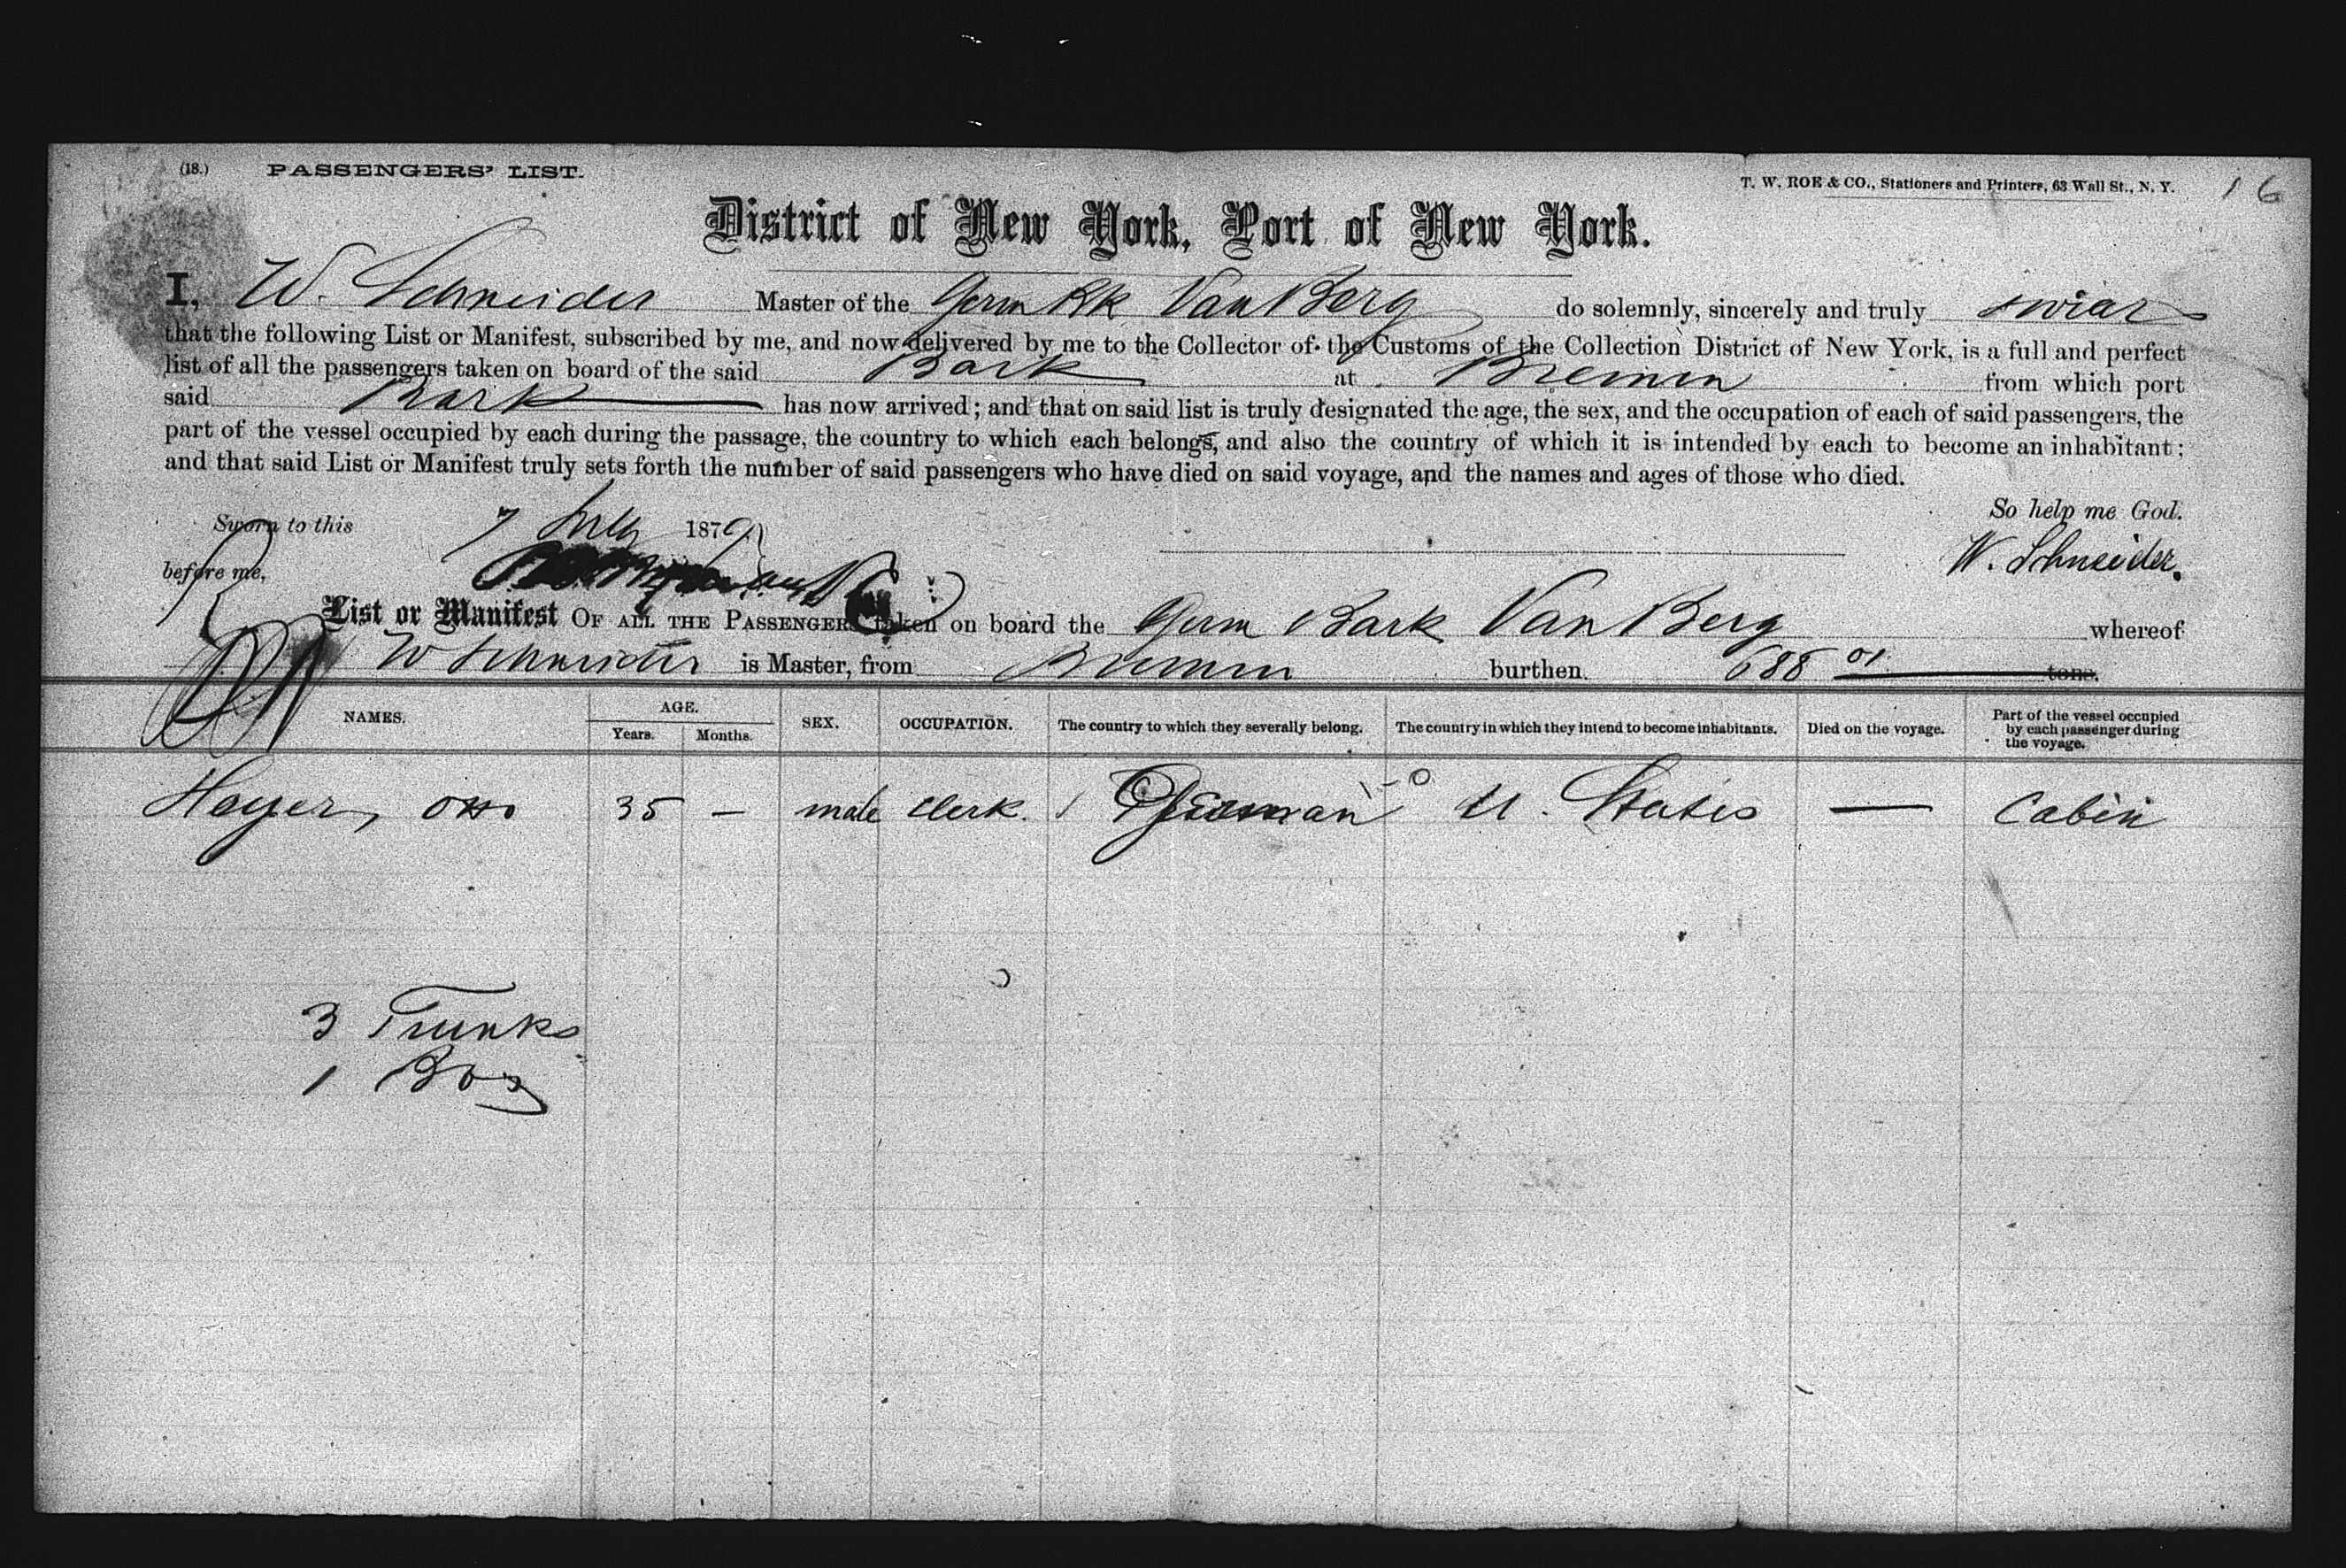 (18.) PASSENGERS' LIST. T. W. ROE & CO., Stationers and Printers, 63 Wall St., N. Y. 16
District of New York, Port of New York.
I, W. Schneider Master of the Germ Bk Van Berg do solemnly, sincerely and truly swear
that the following List or Manifest, subscribed by me, and now delivered by me to the Collector of the Customs of the Collection District of New York, is a full and perfect
list of all the passengers taken on board of the said Bark at Bremen from which port
said Bark has now arrived; and that on said list is truly designated the age, the sex, and the occupation of each of said passengers, the
part of the vessel occupied by each during the passage, the country to which each belongs, and also the country of which it is intended by each to become an inhabitant;
and that said List or Manifest truly sets forth the number of said passengers who have died on said voyage, and the names and ages of those who died.
So help me God.
Sworn to this 7 July 1879
W. Schneider.
before me,
List or Manifest OF ALL THE PASSENGERS taken on board the Germ Bark Van Berg whereof
W Schneider is Master, from Bremen burthen 688 01 tons.
NAMES. AGE. Years. Months. SEX. OCCUPATION. The country to which they severally belong. The country in which they intend to become inhabitants. Died on the voyage. Part of the vessel occupied by each passenger during the voyage.
Heyer, Otto 35 — male Clerk. German U. States — Cabin
3 Trunks
1 Box